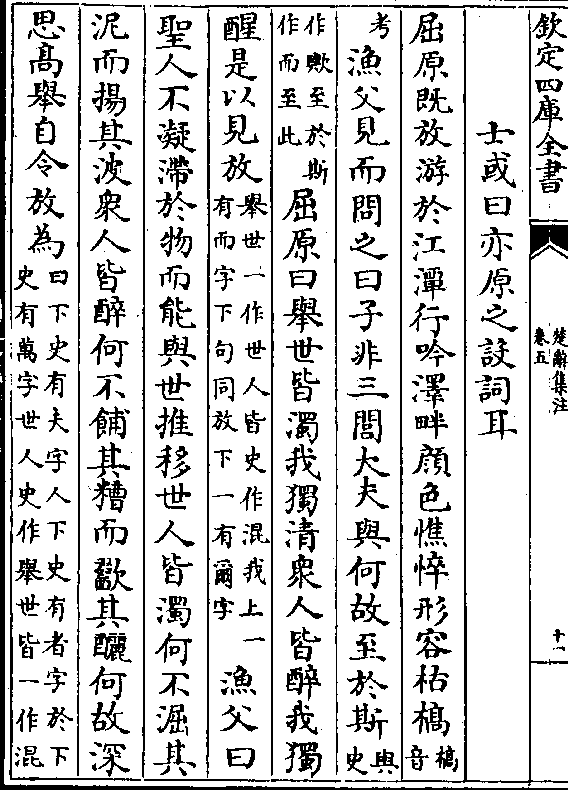 欽定四庫全書
楚辭集注
卷五
十一
士或曰亦原之設詞耳
屈原既放游於江潭行吟澤畔顔色憔悴形容枯槁槁音
考漁父見而問之曰子非三閭大夫與何故至於斯與史
作歟至於斯作而至此屈原曰舉世皆濁我獨清衆人皆醉我獨
醒是以見放舉世一作世人皆史作混我上一有而字下句同放下一有爾字漁父曰
聖人不凝滯於物而能與世推移世人皆濁何不淈其
泥而揚其波衆人皆醉何不餔其糟而歠其釃何故深
思高舉自令放為曰下史有夫字人下史有者字於下史有萬字世人史作舉世皆一作混